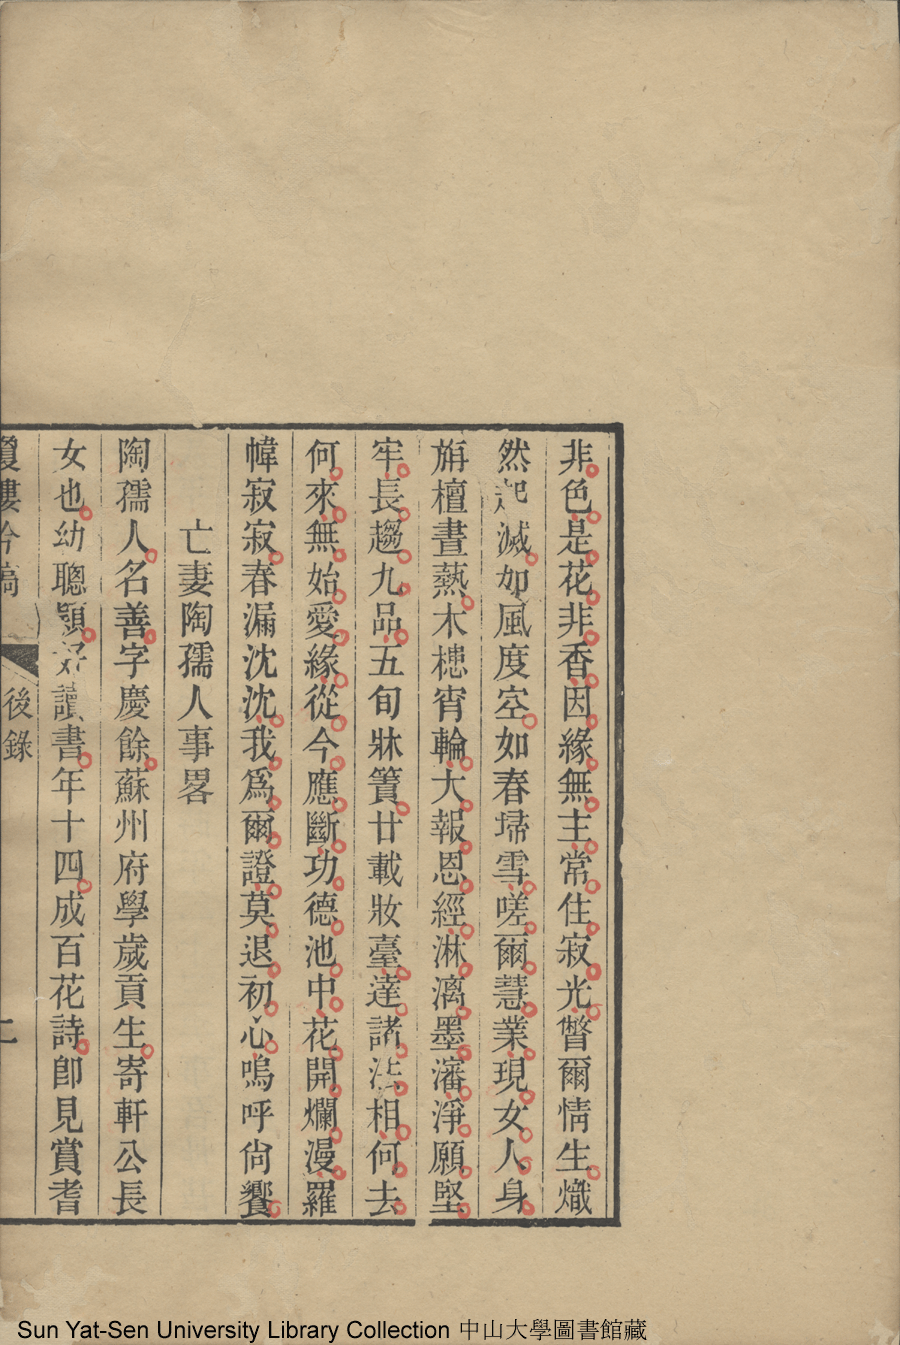 非色是花非香因緣無主常住寂光瞥爾情生熾
然起滅如風度空如春埽雪嗟爾慧業現女人身
旃檀晝爇木槵宵輪大報恩經淋漓墨瀋淨願堅
牢長趨九品五旬牀簀廿載妝臺達諸法相何去
何來無始愛緣從今應斷功德池中花開爛漫羅
幃寂寂春漏沈沈我爲爾證莫退初心嗚呼尙饗
亡妻陶孺人事畧
陶孺人名善字慶餘蘇州府學歲貢生寄軒公長
女也幼聰穎好讀書年十四成百花詩卽見賞耆
瓊樓吟稿 後錄
Sun Yat-Sen University Library Collection 中山大學圖書館藏